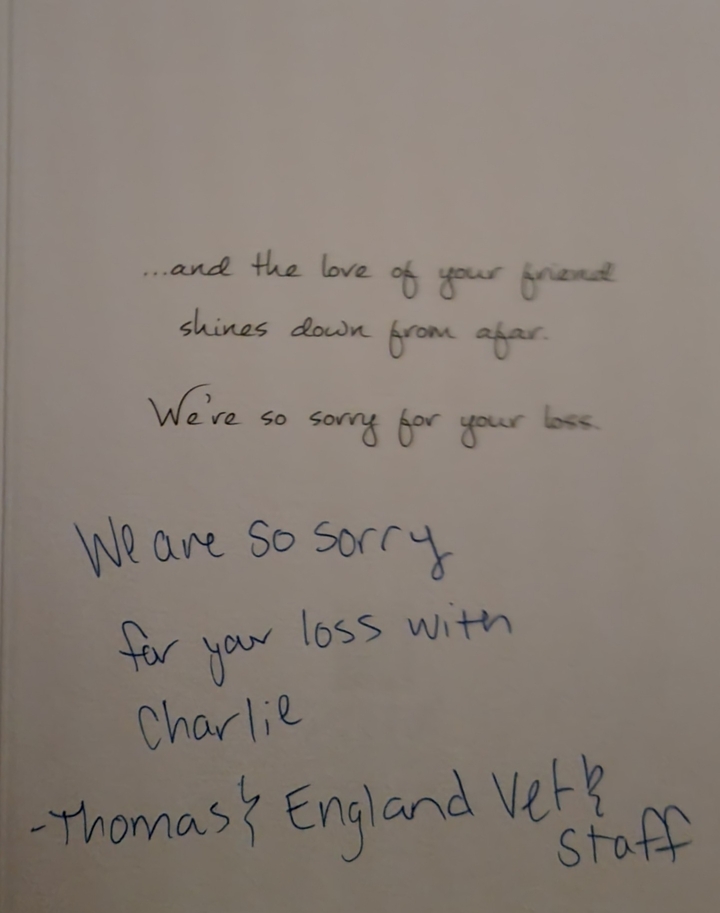 ...and the love of your friend
shines down from afar.
We're so sorry for your loss.
We are so sorry
for your loss with
Charlie
-Thomas & England Vet &
staff